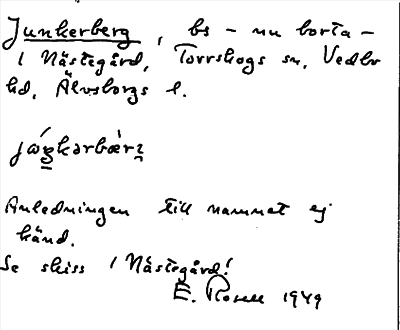 Junkerberg, bs - nu borta -
i Nästegård, Torrskogs sn, Vedbo
hd, Älvsborgs l.
Anledningen till namnet ej
känd.
Se skiss i Nästegård!
E. Rosell 1949